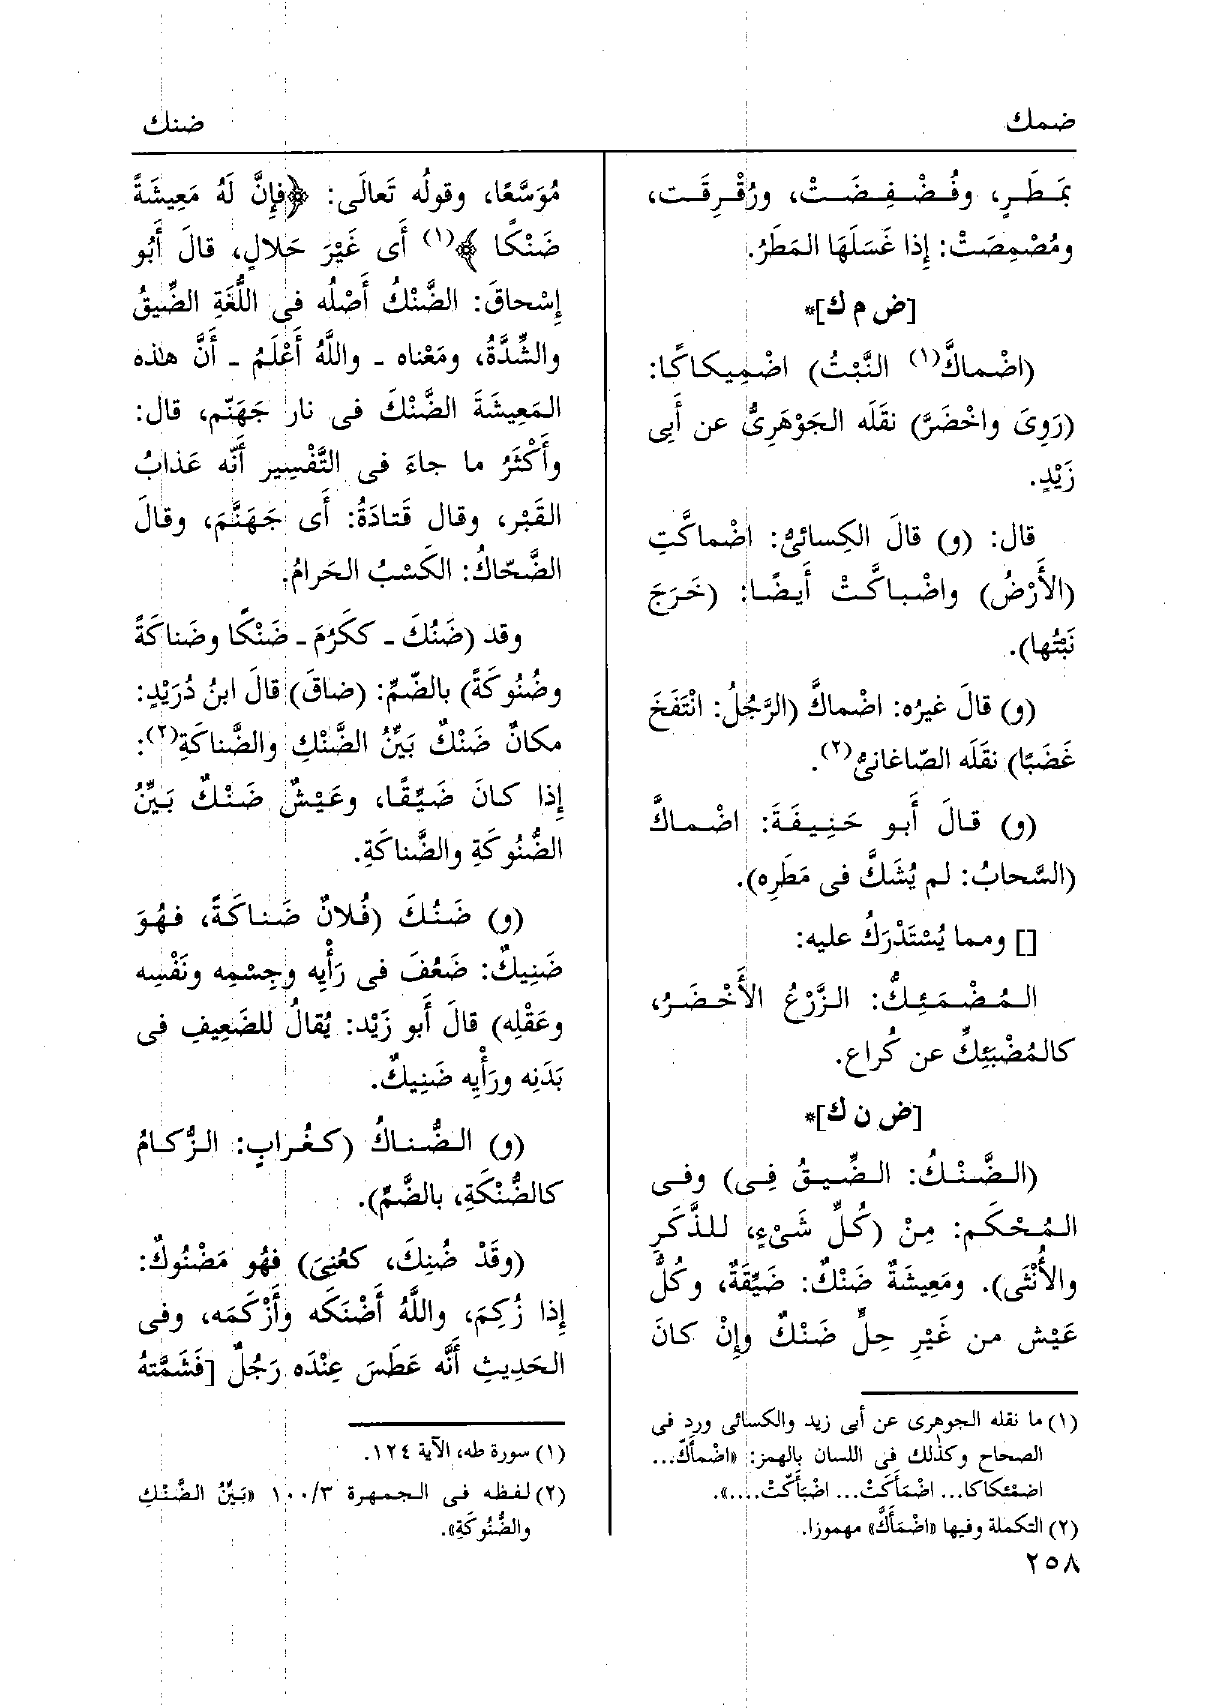 ضمك
ضنك
بمَـطَـرٍ، وفُـضْـفِـضَـتْ، ورُقْـرِقَـت،
ومُصْمِصَتْ: إِذا غَسَلَهَا المَطَرُ.
[ض م ك]*
(اضْماكَّ(١) النَّبْتُ) اضْمِيكاكًا:
(رَوِىَ واخْضَرَّ) نقَلَه الجَوْهَرِىُّ عن أَبِى
زَيْدٍ.
قال: (و) قالَ الكِسائِىُّ: اضْماكَّتِ
(الأَرْضُ) واضْباكَّتْ أَيضًا: (خَرَجَ
نَبْتُها).
(و) قالَ غيرُه: اضْماكَّ (الرَّجُلُ: انْتَفَخَ
غَضَبًا) نقَلَه الصّاغانىُّ(٢).
(و) قـالَ أَبـو حَـنِـيـفَـةَ: اضْـمـاكَّ
(السَّحابُ: لم يُشَكَّ فى مَطَرِه).
[] ومما يُسْتَدْرَكُ عليه:
الـمُـضْـمَـئِـكُّ: الـزَّرْعُ الأَخْـضَـرُ،
كالمُضْبَئِكِّ عن كُراع.
[ض ن ك]*
(الـضَّـنْـكُ: الـضِّـيـقُ فِـى) وفـى
المُحْكَم: مِنْ (كُلِّ شَىْءٍ، للذَّكَرِ
والأُنْثَى). ومَعِيشَةٌ ضَنْكٌ: ضَيِّقَةٌ، وكُلُّ
عَيْش من غَيْرِ حِلٍّ ضَنْكٌ وإِنْ كانَ
(١) ما نقله الجوهرى عن أبى زيد والكسائى ورد فى
الصحاح وكذلك فى اللسان بالهمز: «اضْمأَكّ...
اضمئكاكا... اضْمَأَكَتْ... اضبَأكّتْ....».
(٢) التكملة وفيها «اضْمَأَكَّ» مهموزا.
٢٥٨
مُوَسَّعًا، وقولُه تَعالَى: ﴿فإِنَّ لَهُ مَعِيشَةً
ضَنْكًا ﴾(١) أَى غَيْرَ حَلالٍ، قالَ أَبُو
إِسْحاقَ: الضَّنْكُ أَصْلُه فى اللُّغَةِ الضِّيقُ
والشِّدَّةُ، ومَعْناه ـ واللَّهُ أَعْلَمُ ـ أَنَّ هذه
المَعِيشَةَ الضَّنْكَ فى نار جَهَنّم، قال:
وأَكْثَرُ ما جاءَ فى التَّفْسِير أَنّه عَذابُ
القَبْر، وقال قَتادَةُ: أَى جَهَنَّمَ، وقالَ
الضَّحّاكُ: الكَسْبُ الحَرامُ.
وقد (ضَنُكَ ـ ككَرُمَ ـ ضَنْكًا وضَناكَةً
وضُنُوكَةً) بالضّمِّ: (ضاقَ) قالَ ابنُ دُرَيْدٍ:
مكانٌ ضَنْكٌ بَيِّنُ الضَّنْكِ والضَّناكَةِ(٢):
إِذا كانَ ضَيِّقًا، وعَيْشٌ ضَنْكٌ بَيِّنُ
الضُّنُوكَةِ والضَّناكَةِ.
(و) ضَنُكَ (فُلانٌ ضَناكَةً، فهُوَ
ضَنِيكٌ: ضَعُفَ فى رَأْيِه وجِسْمِه ونَفْسِه
وعَقْلِه) قالَ أَبو زَيْد: يُقالُ للضَعِيفِ فى
بَدَنِه ورَأْيِه ضَنِيكٌ.
(و) الـضُّـنـاكُ (كـغُـرابٍ: الـزُّكـامُ
كالضُّنْكَةِ، بالضَّمِّ).
(وقَدْ ضُنِكَ، كعُنِىَ) فهُو مَضْنُوكٌ:
إِذا زُكِمَ، واللَّهُ أَضْنَكَه وأَزْكَمَه، وفى
الحَدِيثِ أَنَّه عَطَسَ عِنْدَه رَجُلٌ [فَشَمَّتهُ
(١) سورة طه، الآية ١٢٤.
(٢) لفظه فى الجمهرة ١٠٠/٣ «بَيِّنُ الضَّنْكِ
والضُّنُوكَةِ».